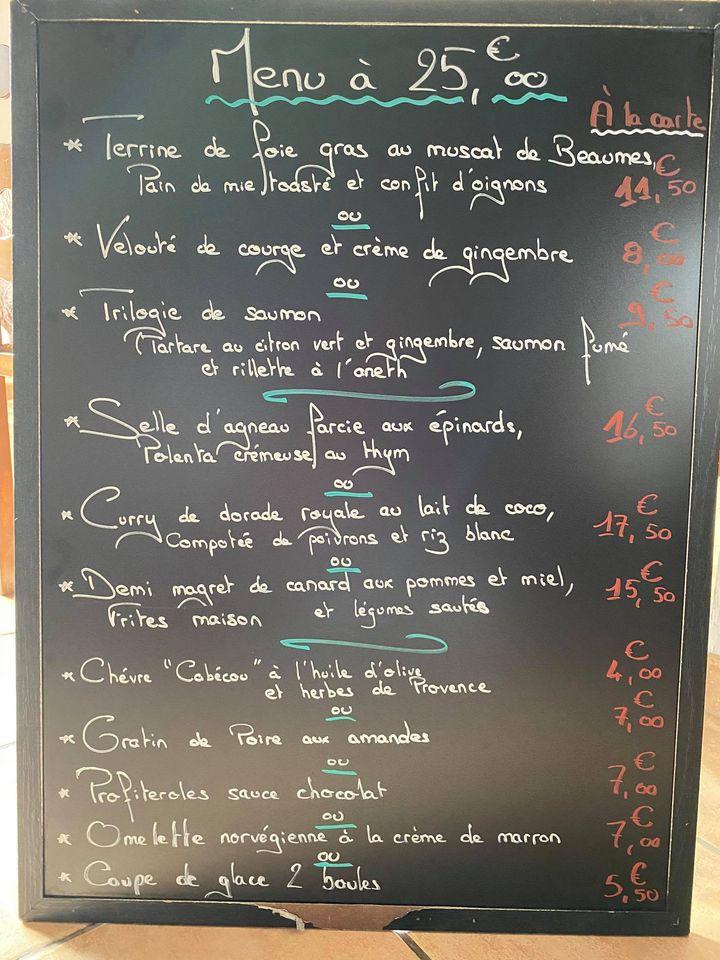 Menu à 25,€00
À la carte
* Terrine de foie gras au muscat de Beaumes,
Pain de mie toasté et confit d'oignons 11,€50
ou
* Velouté de courge et crème de gingembre 8,€00
ou
* Trilogie de saumon 9,€50
Tartare au citron vert et gingembre, saumon fumé
et rillette à l'aneth
* Selle d'agneau farcie aux épinards, 16,€50
Polenta crémeuse au thym
ou
* Curry de dorade royale au lait de coco, 17,€50
Compotée de poivrons et riz blanc
ou
* Demi magret de canard aux pommes et miel, 15,€50
Frites maison et légumes sautés
* Chévre "Cabécou" à l'huile d'olive 4,€00
et herbes de Provence
ou
* Gratin de Poire aux amandes 7,€00
ou
* Profiteroles sauce chocolat 7,€00
ou
* Omelette norvégienne à la crème de marron 7,€00
ou
* Coupe de glace 2 boules 5,€50